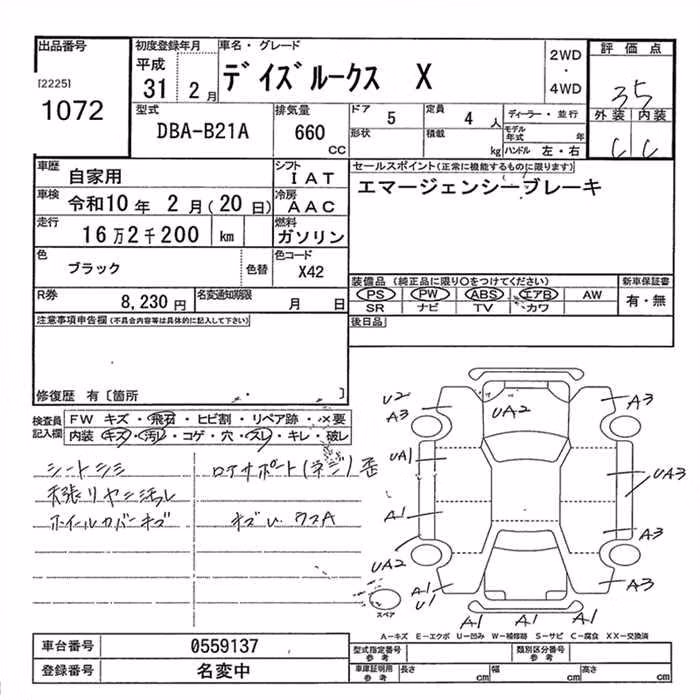 出品番号
[2225]
1072
初度登録年月
平成
31 2月
車名・グレード
デイズルークス X
2WD
・
4WD
評価点
35
外装 内装
C C
型式
DBA-B21A
排気量
660
CC
ドア 5
定員 4 人
形状
積載 kg
ディーラー・並行
モデル年式 年
ハンドル 左・右
車歴 自家用
シフト IAT
車検 令和10年 2月(20日)
冷房 AAC
走行 16万2千200 km
燃料 ガソリン
色 ブラック
色替
色コード X42
R券 8,230円
名変通知期限 月 日
セールスポイント(正常に機能するものに限ります)
エマージェンシーブレーキ
装備品(純正品に限り○をつけてください)
PS PW ABS エアB AW
SR ナビ TV カワ
新車保証書
有・無
後日品
注意事項申告欄(不具合内容等は具体的に記入して下さい)
修復歴 有〔箇所 〕
検査員記入欄
FW キズ・飛石・ヒビ割・リペア跡・×要
内装・キズ・汚レ・コゲ・穴・スレ・キレ・破レ
シートシミ
天張リヤニ汚レ
ホイールカバーキズ
ロアサポート(ネジ)歪
キズU.ワスA
U2
A3
UA2
A3
UA1
UA3
A1
A3
UA2
A1
U1
A3
スペア
A1 A1 A1
A-キズ E-エクボ U-凹み W-補修跡 S-サビ C-腐食 XX-交換済
車台番号 0559137
登録番号 名変中
型式指定番号
参考
類別区分番号
参考
車庫証明用
参考
長さ cm 幅 cm 高さ cm